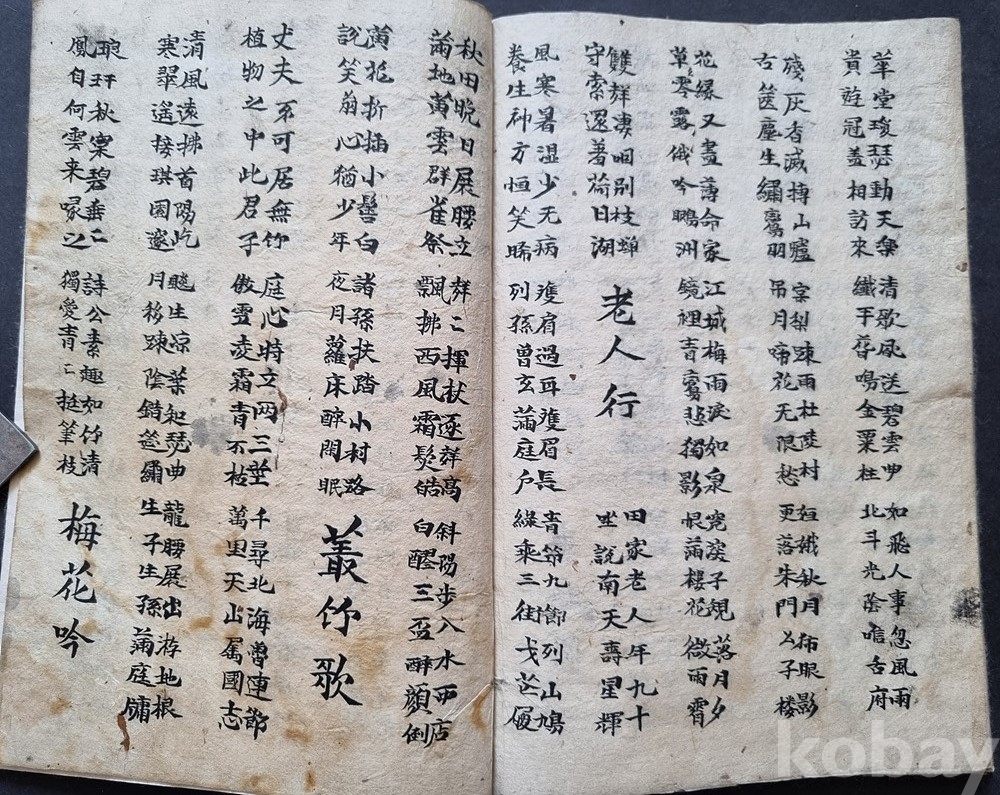 華堂瑗瑟動天樂 清歌夙送碧雲曲 如飛人事忽風雨
貴遊冠盖相訪來 纖手鳴金粟柱 北斗光陰唯古府
殘灰香滅搏山爐 棠梨踈雨杜陵村 姮娥秋月眼影
古篋塵生繡鴛羽 吊月啼花无限愁 更落朱門公子楼
花緣又盡薄命家 江城梅雨淚如泉 寃淚子規落月夕
草零露俄吟鵬洲 镜裡青鸞悲獨影 恨蒲樓花微雨霄
雙群妻咽别枝蟬
守索還著荷日湖
老人行
田家老人年九十
坐說南天壽星輝
風寒暑湿少无病 雙肩過耳雙眉長 青節九節列山鳩
養生神方恒笑睎 列孫曽玄蒲庭戶 緣乘三街芒屐
秋田晩日展腰立 群〻揮杖逐群高 斜陽步入水西店
蒲地黃雲群雀祭 飄拂西風霜鬂皓 白醪三盃酔顔倒
黃花折插小鬢白 諸孫扶踏小村路
說笑翁心猶少年 夜月蘿床酔閑眠
叢竹歌
丈夫不可居無竹 庭心特立两三莖 千尋北海魯連節
植物之中此君子 傲雪凌霜青不枝 萬里天山属國志
清風遠拂首陽屹 颼生凉葉知瑟曲 龍腰展出游地根
寒翠遙接琪園邃 月移踈陰錯筵繡 生子生孫蒲庭牗
琅玕秋實碧垂〻 詩公素趣如竹清
鳳自何雲来啄之 獨愛青〻挺筆枝
梅花吟
kobay